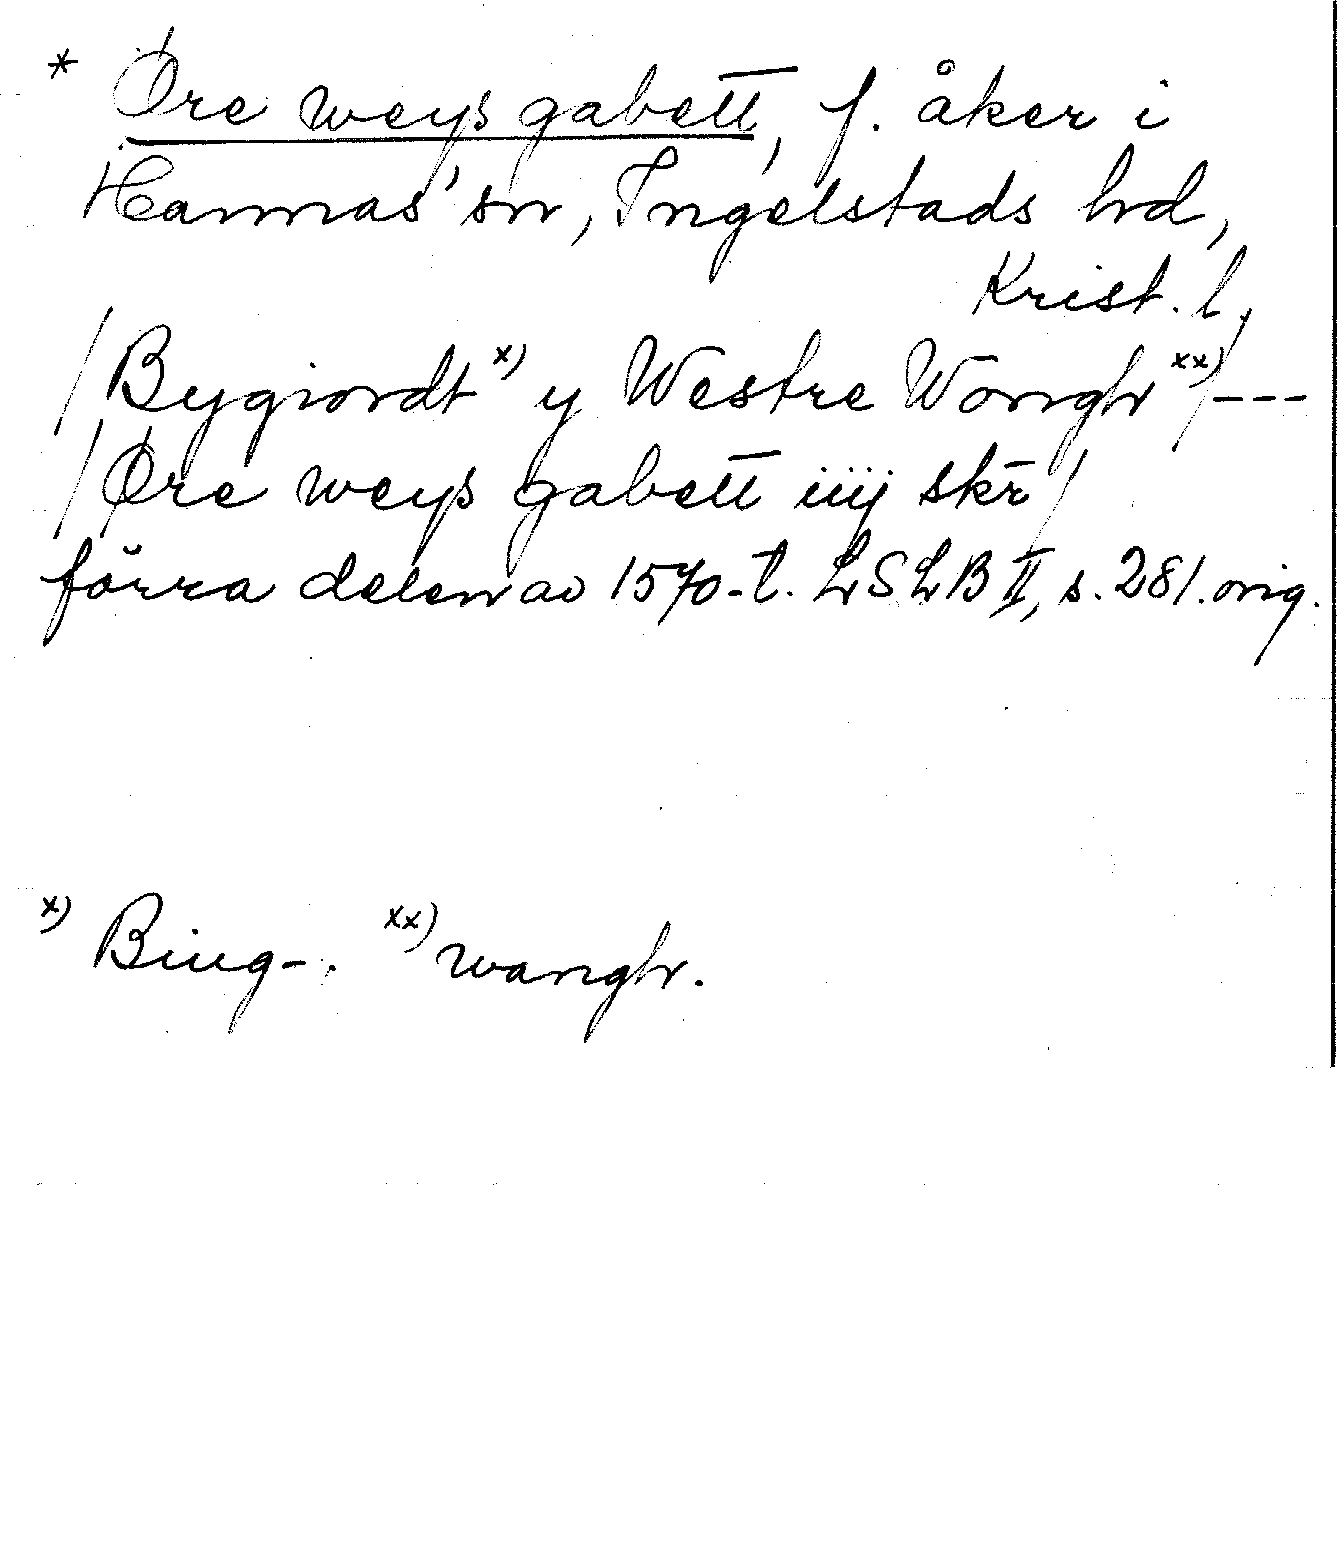 * Øre weys gabett̅, f. åker i
Hannas' sn, Ingelstads hd,
Krist. l.
/Bygiordt x) y Westre Wongh xx)/ ---
/Øre weys gabett̅ iiij skr̄/
förra delen av 1570-t. LSLB II, s. 281. orig.
x) Biug-. xx) wangh.